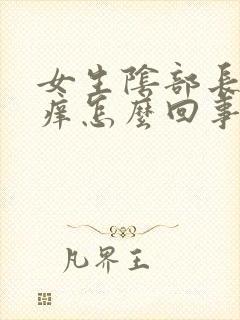 女生陰部長
痒怎麼回事
凡界王